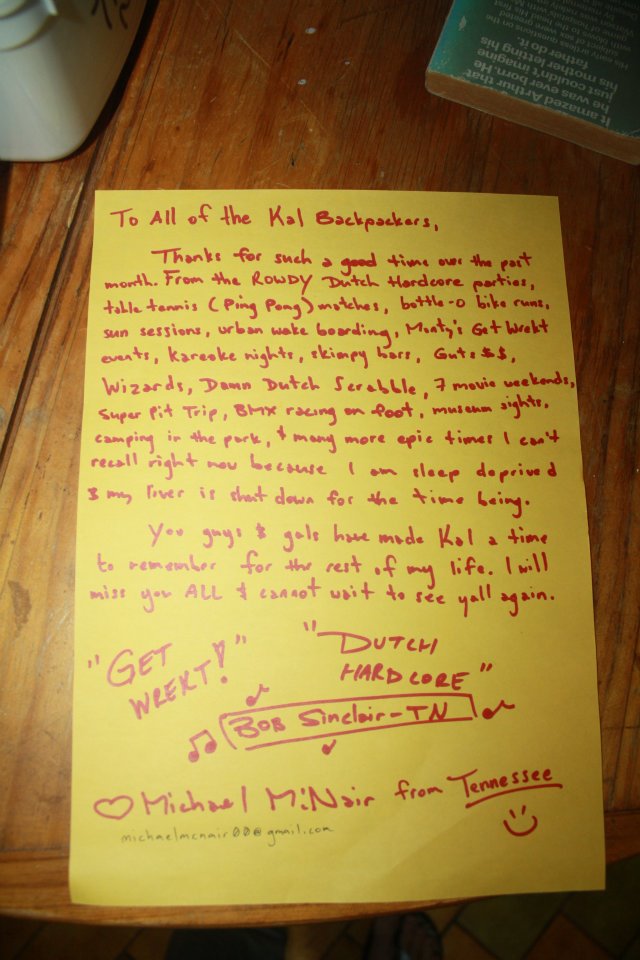 To All of the Kal Backpackers,
Thanks for such a good time over the past
month. From the ROWDY Dutch Hardcore parties,
table tennis (Ping Pong) matches, bottle-o bike runs,
sun sessions, urban wake boarding, Monty's Get Wrekt
events, Kareoke nights, skimpy bars, Guts $$,
Wizards, Damn Dutch Scrabble, 7 movie weekends,
Super Pit Trip, BMX racing on foot, museum sights,
camping in the park, & many more epic times I can't
recall right now because I am sleep deprived
& my liver is shut down for the time being.
You guys & gals have made Kal a time
to remember for the rest of my life. I will
miss you ALL & cannot wait to see yall again.
"GET WREKT!"
"DUTCH HARDCORE"
BOB Sinclair-TN
Michael McNair from Tennessee
michaelmcnair00@gmail.com
It amazed Arthur that
he was ever born. He
just couldn't imagine
his mother letting his
father do it.